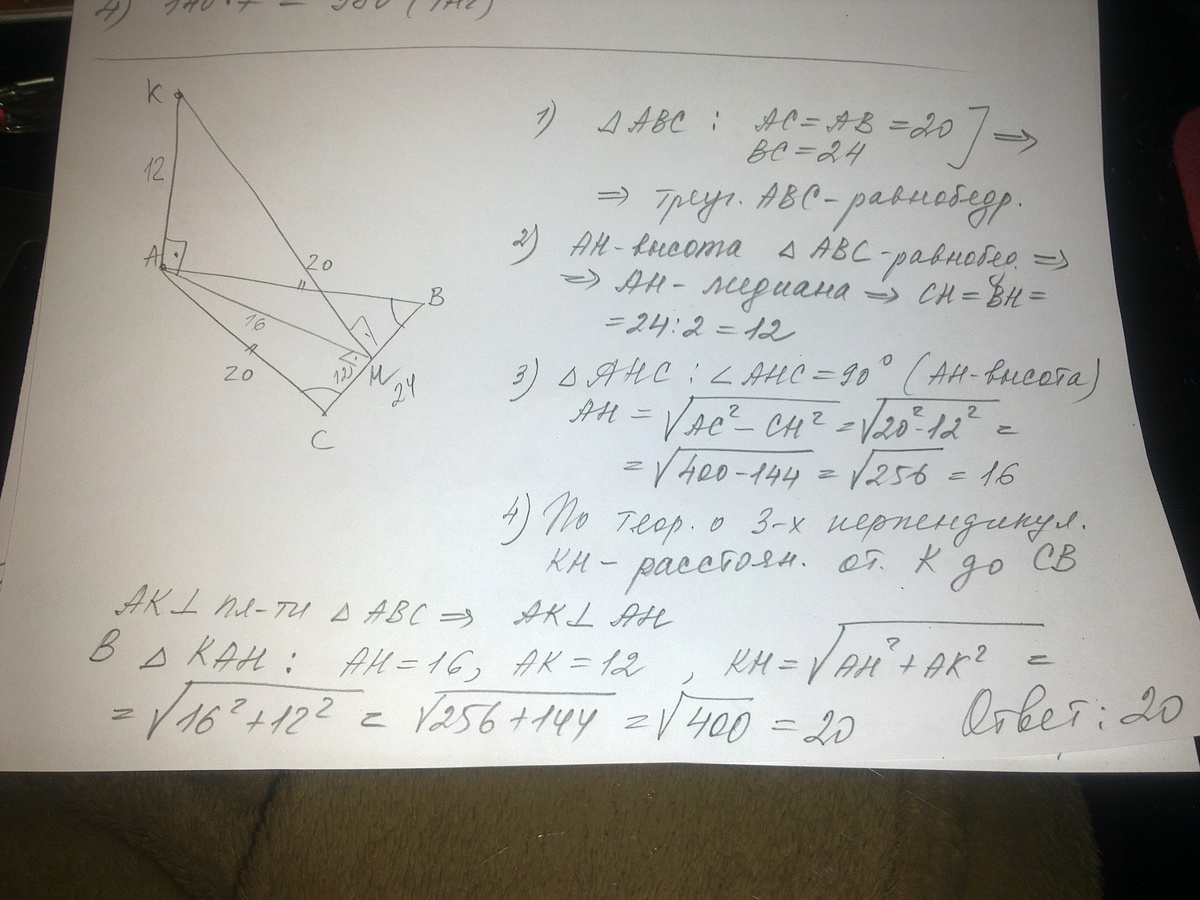 4)
K
12
A
20
B
16
20
12
H
24
C
1) △ABC : AC = AB = 20 ] ⇒
BC = 24
⇒ треуг. ABC - равнобедр.
2) AH - высота △ABC - равнобед. ⇒
⇒ AH - медиана ⇒ CH = BH =
= 24 : 2 = 12
3) △AHC : ∠AHC = 90° (AH - высота)
AH = √AC² - CH² = √20² - 12² =
= √400 - 144 = √256 = 16
4) По теор. о 3-х перпендикул.
KH - расстоян. от. K до CB
AK ⊥ пл-ти △ABC ⇒ AK ⊥ AH
В △KAH : AH = 16, AK = 12 , KH = √AH² + AK² =
= √16² + 12² = √256 + 144 = √400 = 20
Ответ : 20